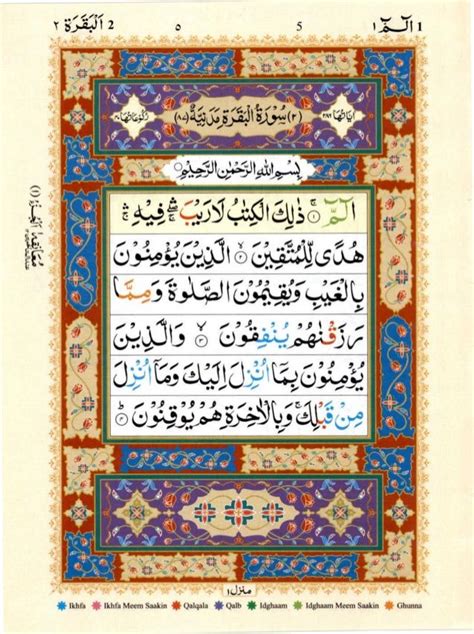 البقرة ٢ 2 ٥ 5 الٓمّٓ ١ 1
اٰيَاتُهَا ٢٨٦ (٢) سُوْرَةُ الْبَقَرَةِ مَدَنِيَّةٌ (٨٧) رُكُوْعَاتُهَا ٤٠
بِسْمِ اللّٰهِ الرَّحْمٰنِ الرَّحِيْمِ
الٓمّٓ ۚ‏ ١ ذٰلِكَ الْكِتٰبُ لَا رَيْبَ ۛۚ فِيْهِ ۛۚ
هُدًى لِّلْمُتَّقِيْنَ ۙ‏ ٢ الَّذِيْنَ يُؤْمِنُوْنَ
بِالْغَيْبِ وَيُقِيْمُوْنَ الصَّلٰوةَ وَمِمَّا
رَزَقْنٰهُمْ يُنْفِقُوْنَ ۙ‏ ٣ وَالَّذِيْنَ
يُؤْمِنُوْنَ بِمَآ اُنْزِلَ اِلَيْكَ وَمَآ اُنْزِلَ
مِنْ قَبْلِكَ ۚ وَبِالْاٰخِرَةِ هُمْ يُوْقِنُوْنَ ؕ‏ ٤
منزل ١
Ikhfa Ikhfa Meem Saakin Qalqala Qalb Idghaam Idghaam Meem Saakin Ghunna